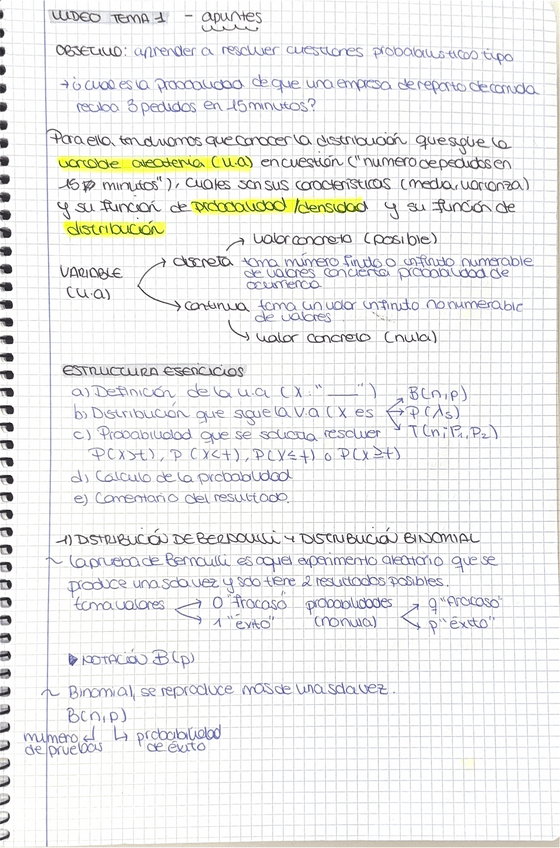 VIDEO TEMA 1 - apuntes
OBJETIVO: aprender a resolver cuestiones probabilísticas tipo
→ ¿cual es la probabilidad de que una empresa de reparto de comida
reciba 3 pedidos en 15 minutos?
Para ello, tenduamos que conocer la distribución que sigue la
variable aleatoria (v.a) en cuestión ("numero de pedidos en
15 minutos"), cuales son sus características (media, varianza)
y su función de probabilidad/densidad y su función de
distribución
→ valor concreto (posible)
VARIABLE (v.a)
→ discreta toma número finito o infinito numerable
de valores con cierta probabilidad de
ocurrencia
→ continua toma un valor infinito no numerable
de valores
→ valor concreto (nula)
ESTRUCTURA EJERCICIOS
a) Definición de la v.a (X: "___")
b) Distribución que sigue la v.a (X es → B(n,p) → P(λs) → T(n; P1, P2)
c) Probabilidad que se solicita resolver
P(X>t), P(X<t), P(X≤t) o P(X≥t)
d) Calculo de la probabilidad
e) Comentario del resultado.
1) DISTRIBUCIÓN DE BERNOULLI Y DISTRIBUCIÓN BINOMIAL
~ La prueba de Bernoulli es aquel experimento aleatorio que se
produce una sola vez y solo tiene 2 resultados posibles.
toma valores → 0 "fracaso" → 1 "éxito" probabilidades (no nula) → q "fracaso" → p "éxito"
▶ NOTACIÓN B(p)
~ Binomial, se reproduce más de una sola vez.
B(n,p)
numero de pruebas ↲ ↳ probabilidad de éxito